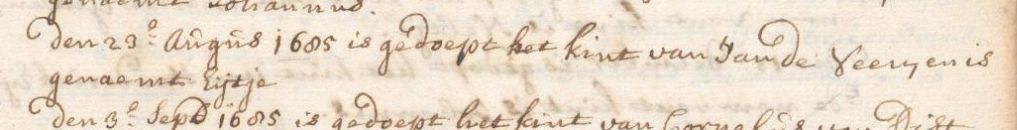 genaemt Johannus.
den 23.º Augus 1685 is gedoept het kint van Jan de Veer, en is
genaemt Eijtje
den 3.º Sept 1685 is gedoept het kint van Cornelus van Dist